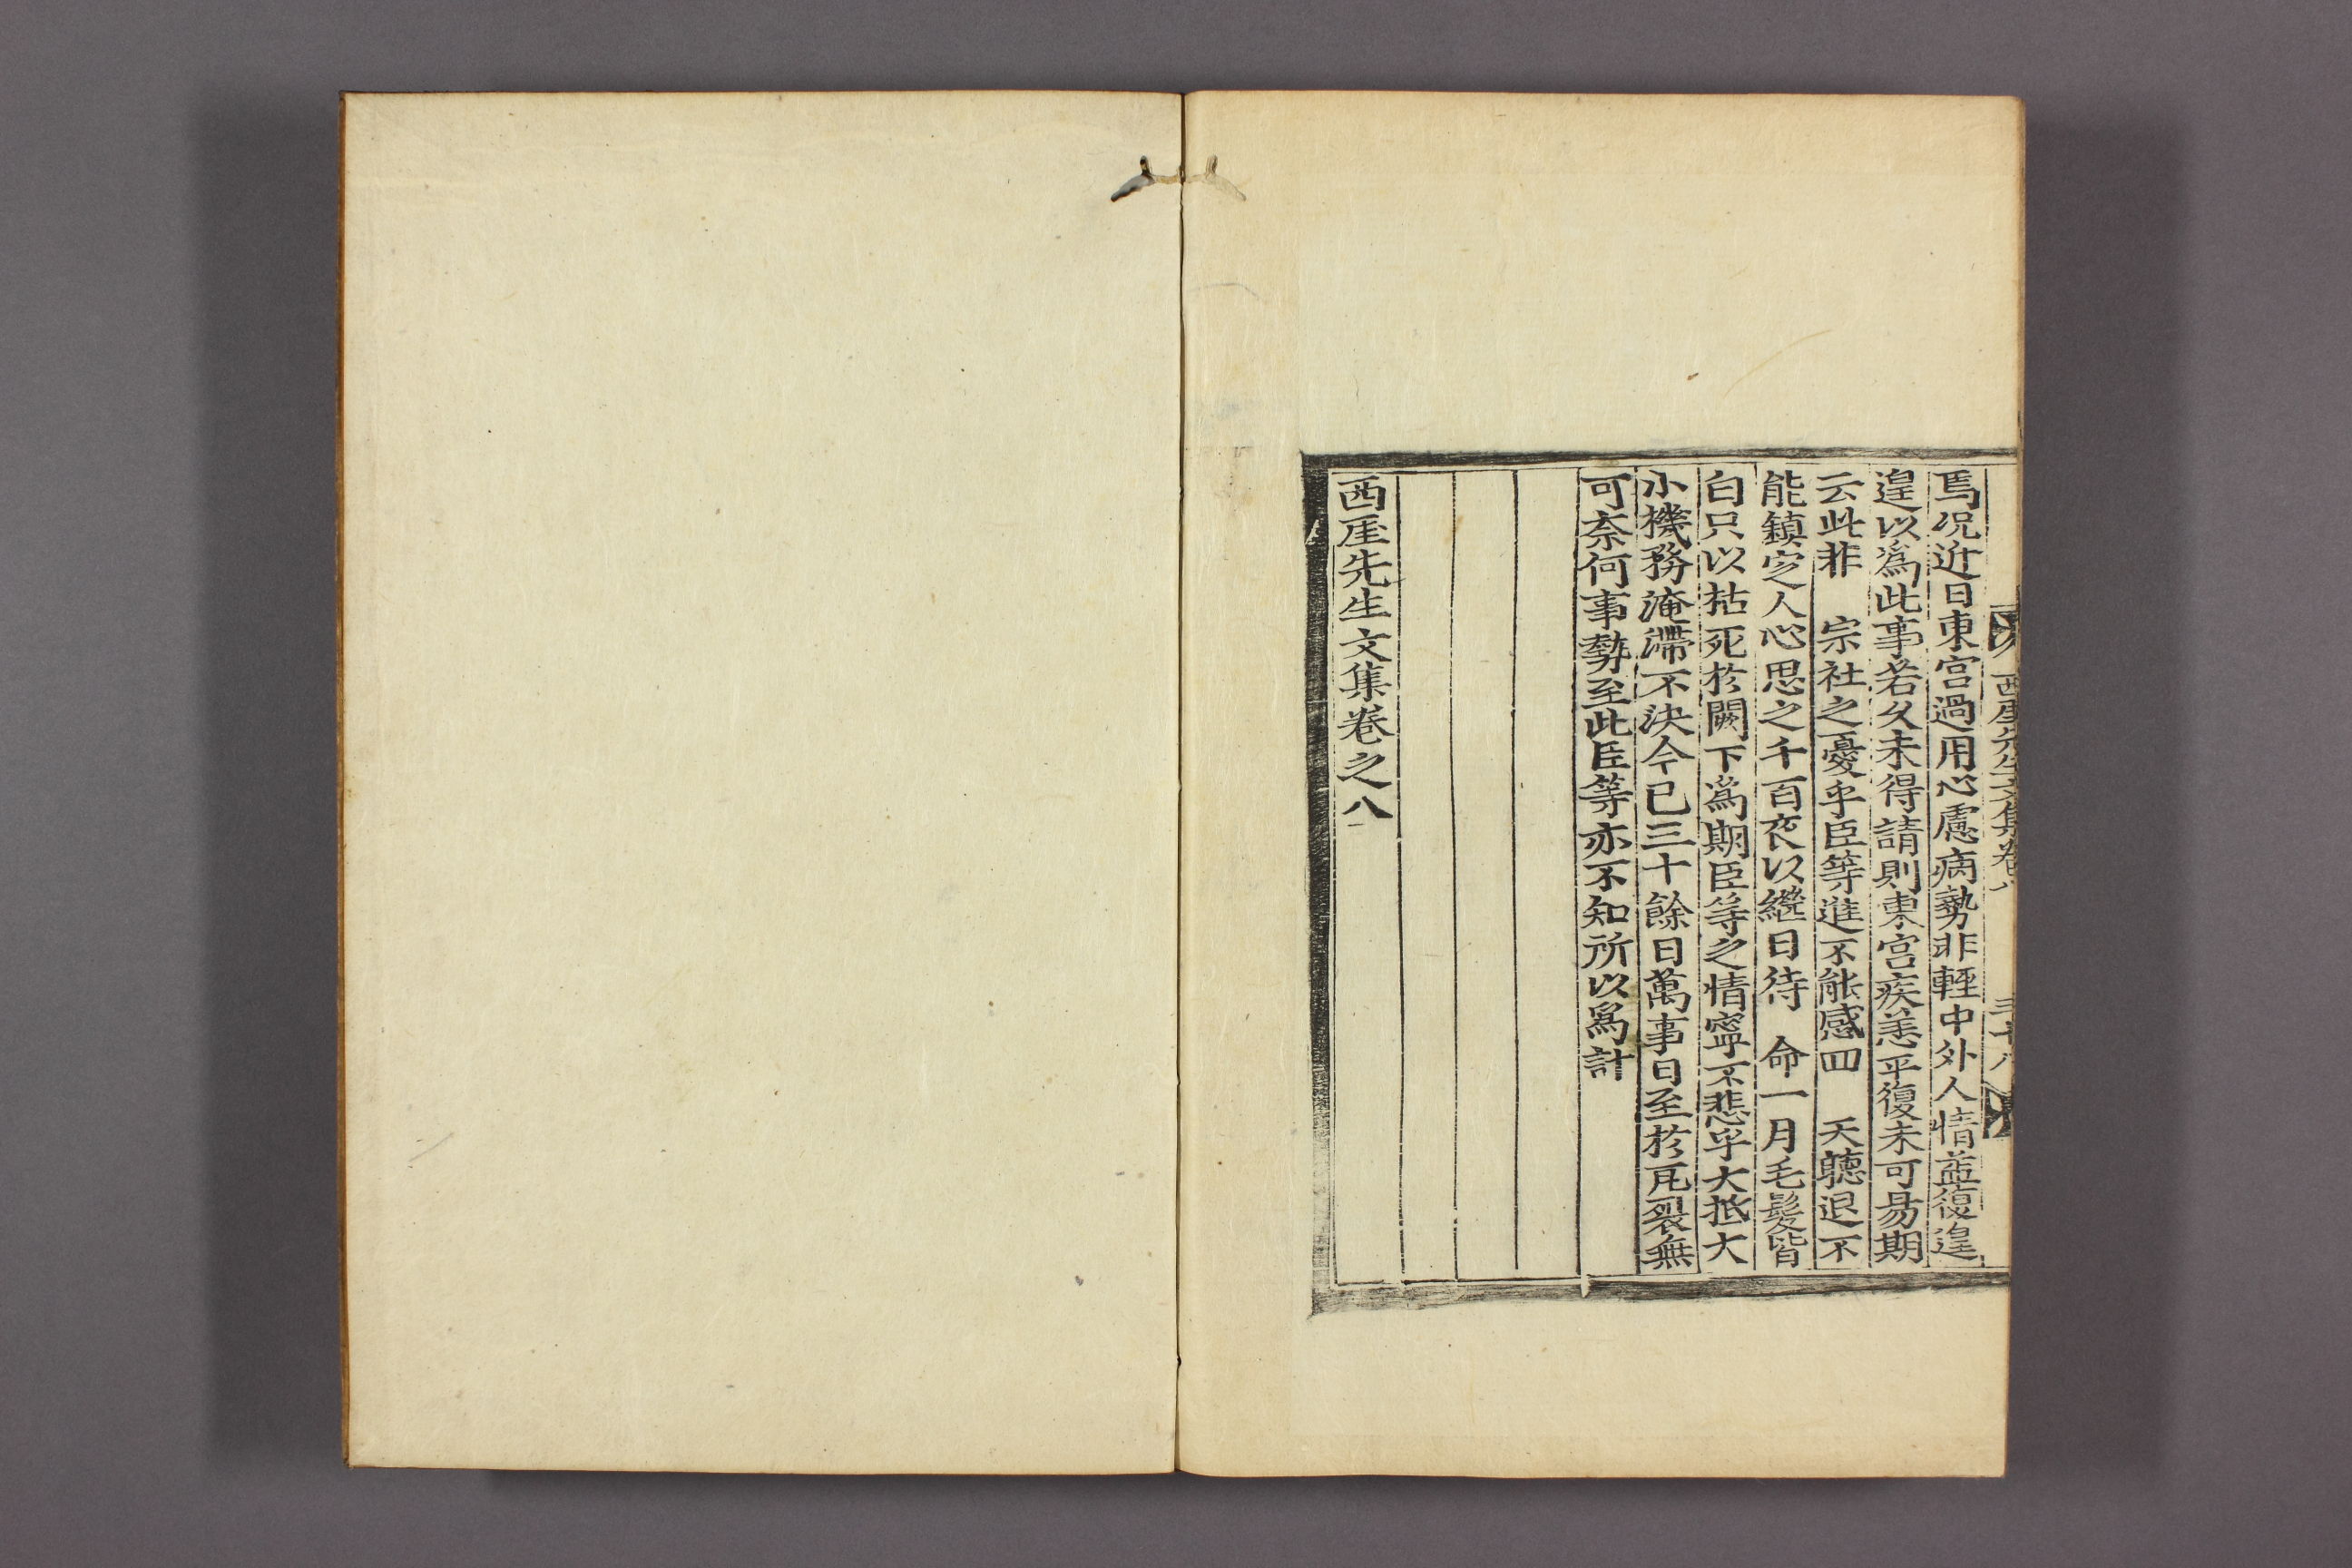 西厓先生文集卷八 三十八
焉况近日東宮過用心慮病勢非輕中外人情益復遑
遑以爲此事若久未得請則東宮疾恙平復未可易期
云此非 宗社之憂乎臣等進不能感回 天聽退不
能鎮定人心思之千百夜以繼日待 命一月毛髮皆
白只以枯死於闕下爲期臣等之情寧不悲乎大抵大
小機務淹滯不決今已三十餘日萬事日至於瓦裂無
可奈何事勢至此臣等亦不知所以爲計
西厓先生文集卷之八